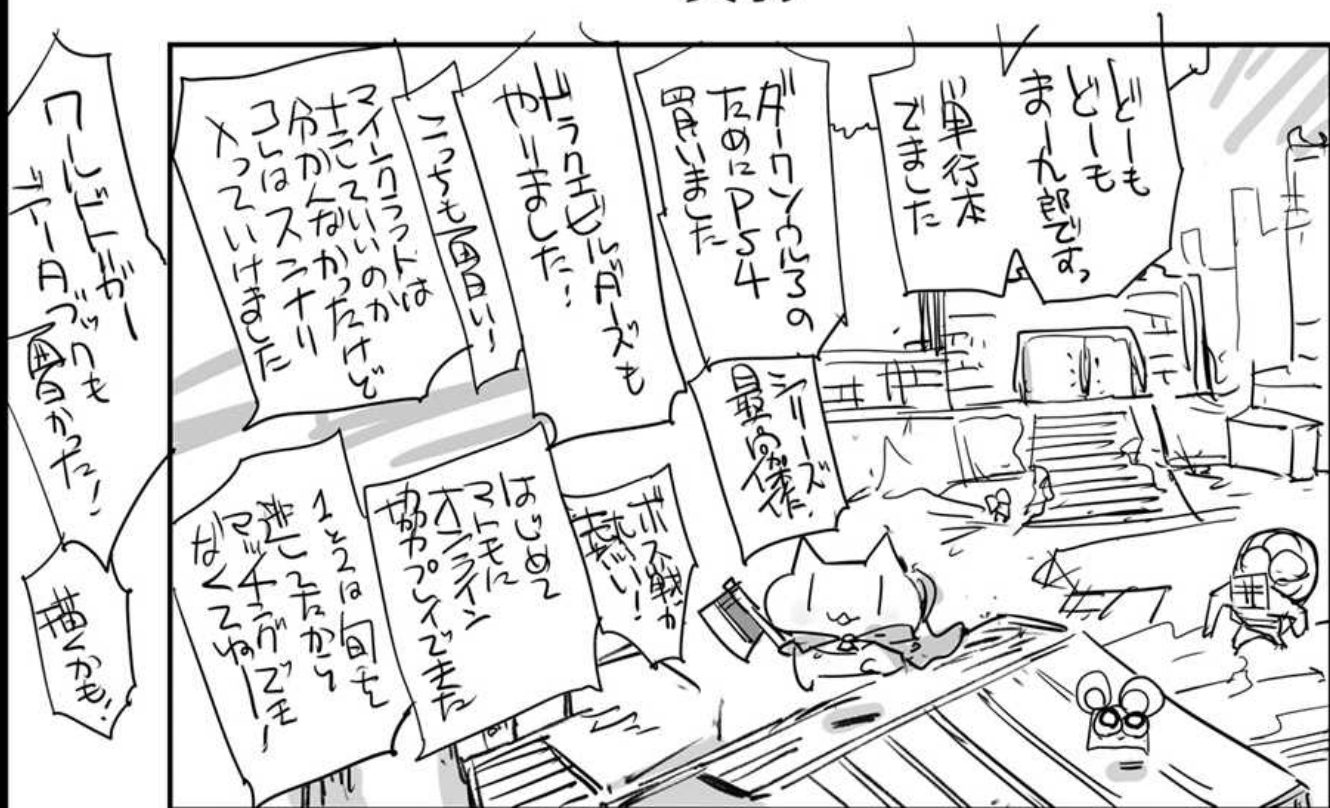 どーも
どーも
まー九郎ですっ
単行本
でました
ダークソウル3の
ためにPS4
買いました
シリーズ
最高傑作だ!
ドラクエビルダーズも
やりました!
こっちも面白い!
マインクラフトは
ナニしていいのか
分かんなかったけど
コレはスンナリ
入っていけました
ボス戦が
はじめて
マトモに
オンライン
協力プレイできた
1と2は旬を
逃してたから
マッチングでき
なくてねー!
ワールドトリガー
データブックも
面白かった!
描くかも!